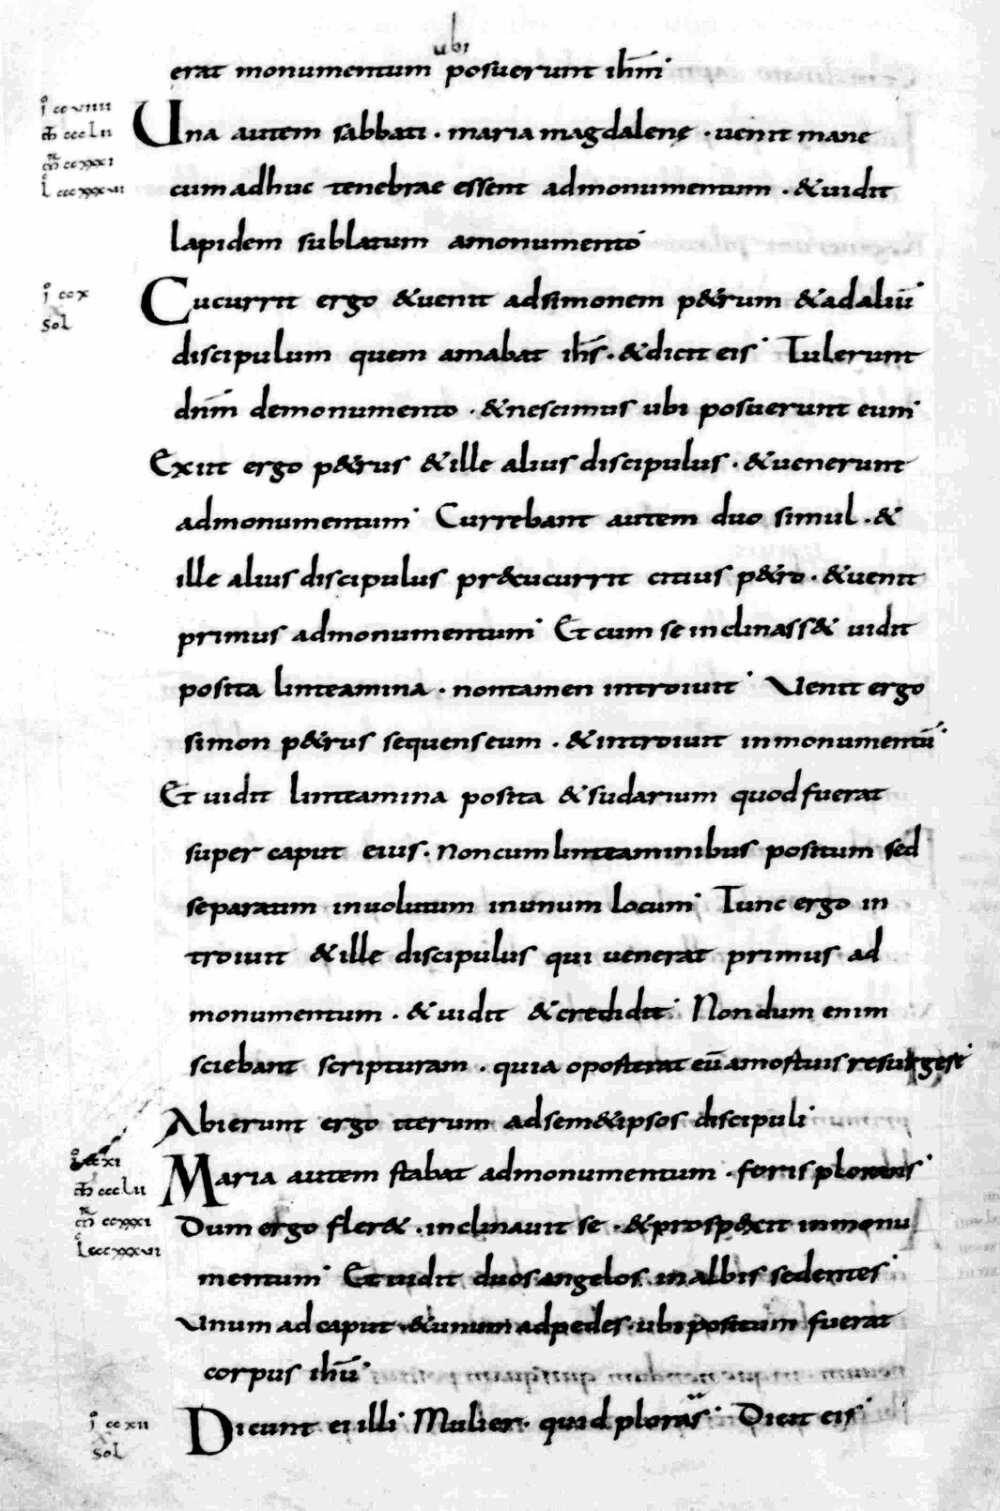 ubi
erat monumentum posuerunt ihm̅
i̊ ccviiii
Una autem sabbati · maria magdalenę · uenit mane
m̅ ccclii
m̅r ccxxxi
cum adhuc tenebrae essent admonumentum · &uidit
l̊ cccxxxvi
lapidem sublatum amonumento
i̊ ccx
Cucurrit ergo &uenit adsimonem p&rum &adaliū
sol
discipulum quem amabat ihs̅ · &dicit eis Tulerunt
dnm̅ demonumento · &nescimus ubi posuerunt eum
Exiit ergo p&rus &ille aliusdiscipulus · &uenerunt
admonumentum Currebant autem duo simul · &
ille aliusdiscipulus pr&ucurrit citius p&ro · &uenit
primus admonumentum Et cum se inclinass& uidit
posita linteamina · nontamen introiuit Uenit ergo
simon p&rus sequenseum · &introiuit inmonumentū
Et uidit linteamina posita &sudarium quodfuerat
super caput eius · noncumlinteaminibus positum sed
separatum inuolutum inunum locum Tunc ergo in
troiuit &ille discipulus qui uenerat primus ad
monumentum · &uidit &credidit Nondum enim
sciebant scripturam · quia oporterat eū amortuis resurgere
Abierunt ergo iterum adsem&ipsos discipuli
i̊ ccxi
Maria autem stabat admonumentum · foris plorans
m̅ ccclii
m̅r ccxxxi
Dum ergo fler& · inclinauit se · &prosp&xit inmonu
l̊ cccxxxvi
mentum Et uidit duosangelos inalbis sedentes
Unum adcaput · &unum adpedes · ubipositum fuerat
corpus ihū
i̊ ccxii
Dicunt ei illi Mulier · quid ploras Dicit eis
sol